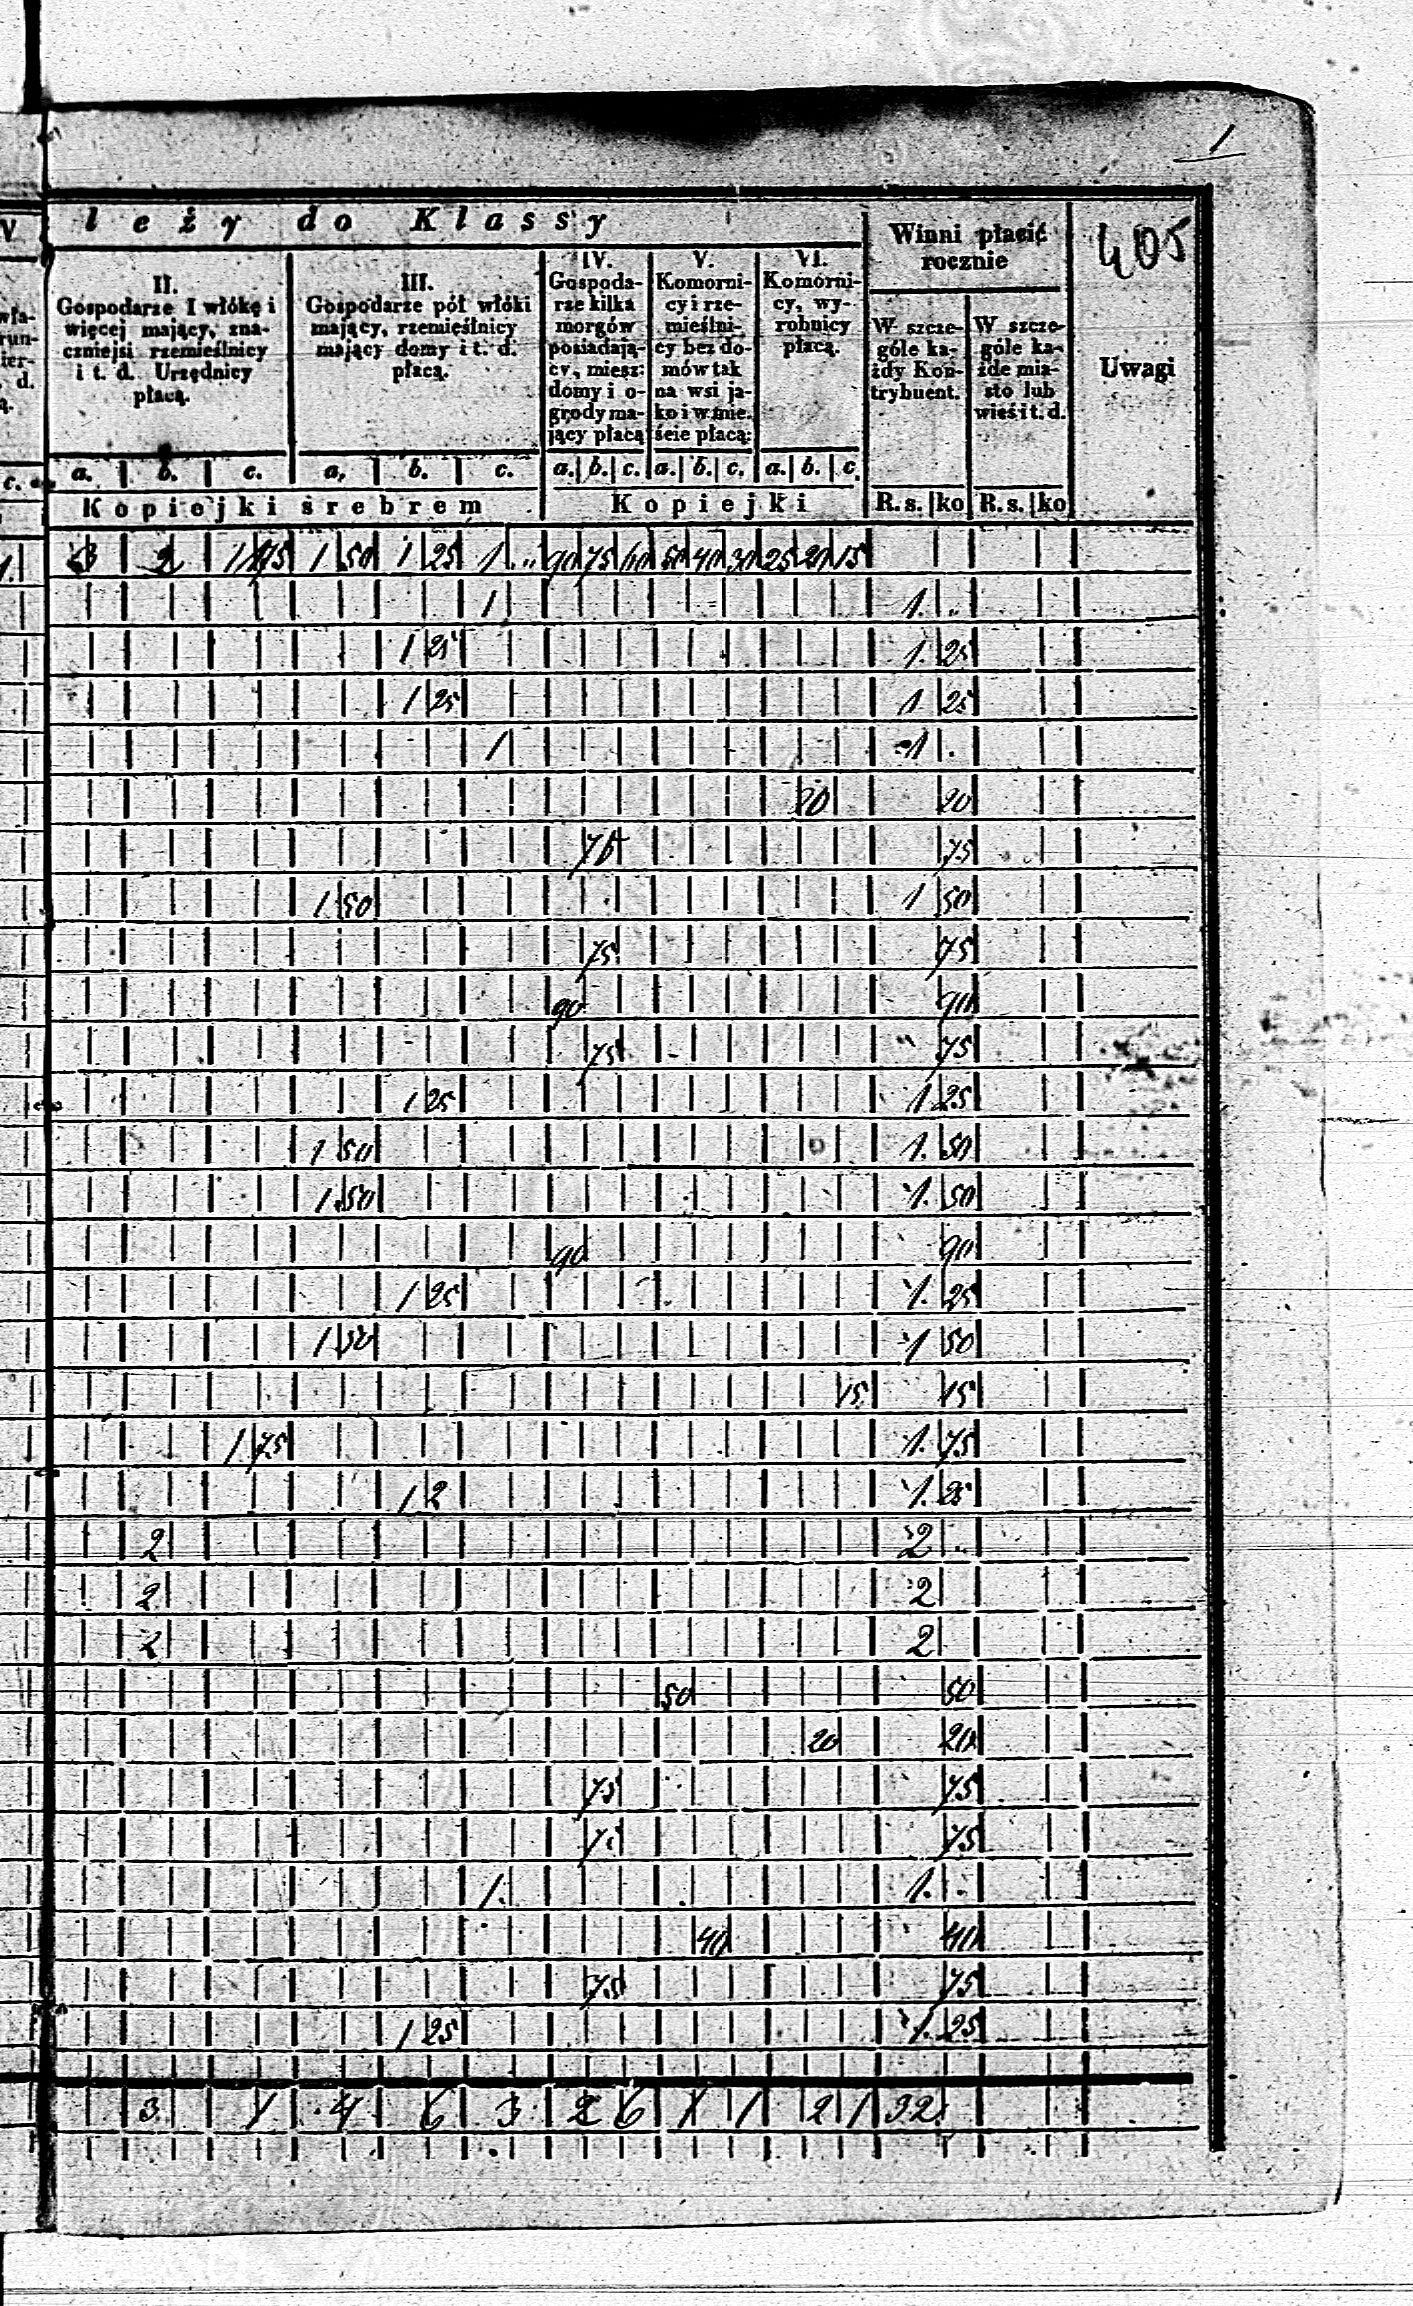 1
V
leży do Klassy
Winni płacić rocznie
405
II.
Gospodarze I włókę i
więcej mający, zna-
czniejsi rzemieślnicy
i t. d. Urzędnicy
płacą.
III.
Gospodarze pół włóki
mający, rzemieślnicy
mający domy i t. d.
płacą.
IV.
Gospoda-
rze kilka
morgów
posiadają-
cy, miesz:
domy i o-
grody ma-
jący płacą
V.
Komorni-
cy i rze-
mieślni-
cy bez do-
mów tak
na wsi ja-
ko i w mie.
ście płacą:
VI.
Komorni-
cy, wy-
robnicy
płacą.
W szcze-
góle ka-
żdy Kon-
trybuent.
W szcze-
góle ka-
żde mia-
sto lub
wieś i t. d.
Uwagi
c. a. b. c. a. b. c. a. b. c. a. b. c. a. b. c.
Kopiejki srebrem Kopiejki R. s. ko R. s. ko
3 2 1 75 1 50 1 25 1 .. 90 75 60 50 40 30 25 20 15
1 1. ..
1 25 1. 25
1 25 1 25
1 1 .
20 20
75 75
1 50 1 50
75 75
90 90
75 75
1 25 1 25
1 50 1. 50
1. 50 1. 50
90 90
1 25 1. 25
1 50 1 50
15 15
1 75 1. 75
1 2 1. 25
2 2 ..
2 2
2 2
50 50
20 20
75 75
75 75
1. 1. .
40 40
75 75
1 25 1. 25
3 1 4 6 3 2 6 1 1 2 1 32